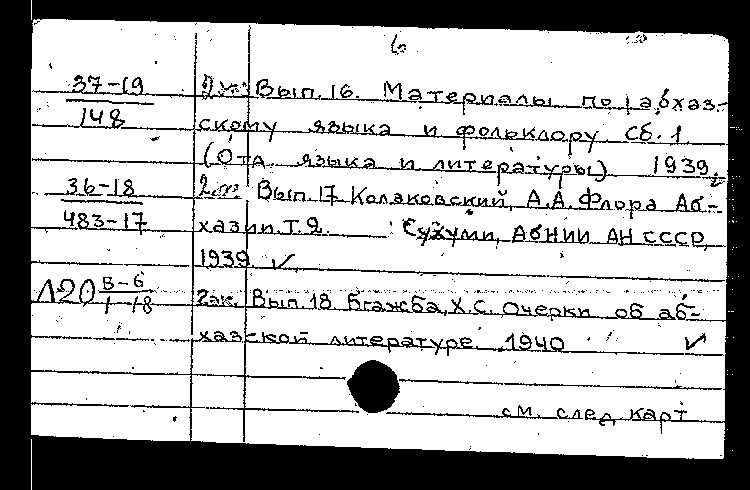 6
37-19
148
2 эк. Вып. 16. Материалы по абхаз-
скому языка и фольклору Сб. 1
(Отд. языка и литературы) 1939.
36-18
483-17
Вып. 17 Колаковский, А.А. Флора Аб-
хазии. Т. 2. Сухуми, АбНИИ АН СССР,
1939 ✓
Л20 5-6
1-18
2 эк. Вып. 18 Бгажба, Х.С. Очерки об аб-
хазской литературе. 1940 ✓
см. след. карт